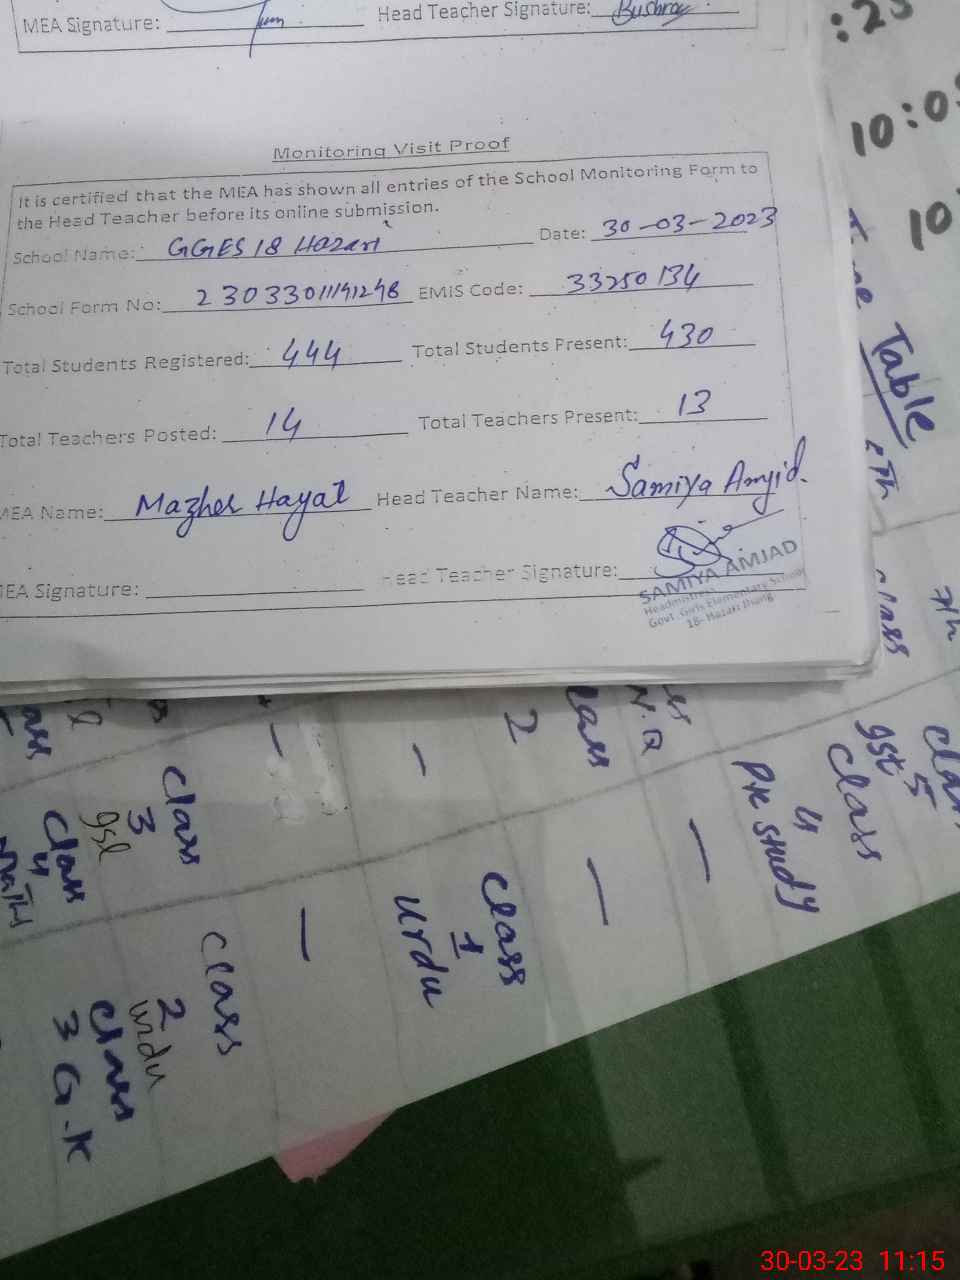 MEA Signature: Head Teacher Signature: Bushra
Monitoring Visit Proof
It is certified that the MEA has shown all entries of the School Monitoring Form to
the Head Teacher before its online submission.
School Name: GGES 18 Hazari Date: 30-03-2023
School Form No: EMIS Code: 33250134
Total Students Registered: 444 Total Students Present: 430
Total Teachers Posted: 14 Total Teachers Present: 13
MEA Name: Mazher Hayat Head Teacher Name: Samiya Amjid.
MEA Signature: Head Teacher Signature:
SAMIYA AMJAD
Headmistress
Govt. Girls Elementary School
18- Hazari Jhang
10:0
10
Table
7th
class
7th
class
gst 5
class
4
Pak study
N.Q
class
2
class
1
urdu
class
3
gsl
class
4
Maths
class
2
urdu
class
3 G.K
30-03-23 11:15